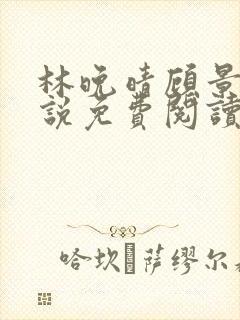 林晚晴顾景
説免費閱讀
哈坎·萨缪尔